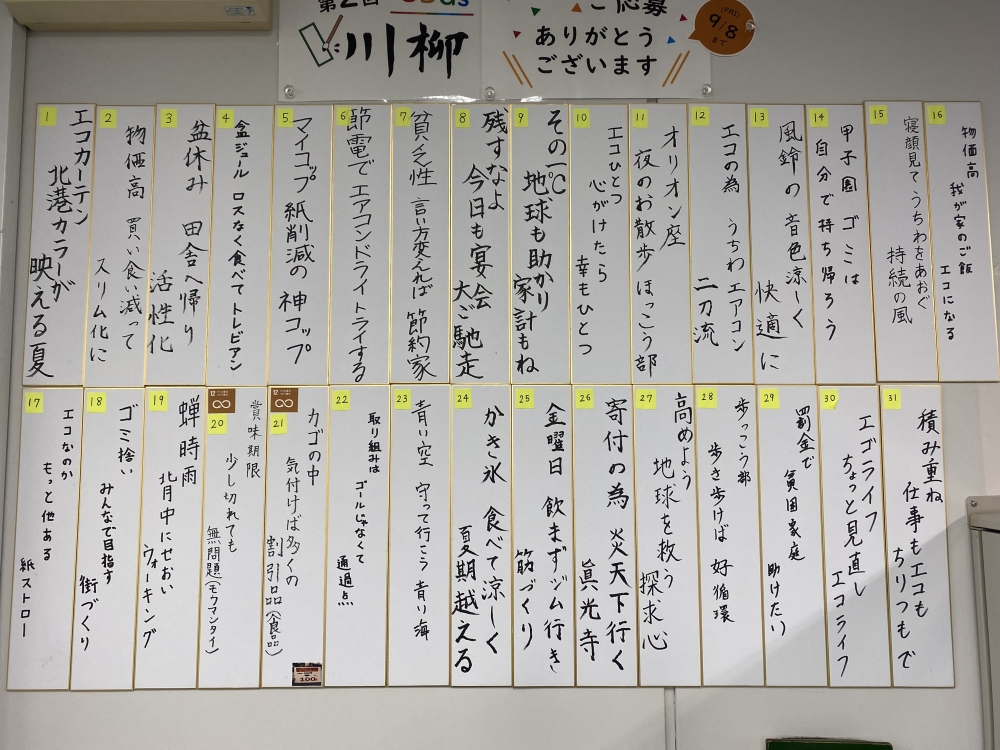 第2回 SDGs
川柳
ご応募
ありがとう
ございます
(FRI)
9/8
まで
1
エコカーテン
北港カラーが
映える夏
2
物価高 買い食い減って
スリム化に
3
盆休み 田舎へ帰り
活性化
4
盆ジュール ロスなく食べて トレビアン
5
マイコップ 紙削減の 神コップ
6
節電で エアコンドライ トライする
7
貧乏性 言い方変えれば 節約家
8
残すなよ
今日も宴会
大ご馳走
9
その一℃
地球も助かり
家計もね
10
エコひとつ
心がけたら
幸もひとつ
11
オリオン座
夜のお散歩 ほっこう部
12
エコの為 うちわ エアコン
二刀流
13
風鈴の 音色涼しく
快適に
14
甲子園 ゴミは
自分で持ち帰ろう
15
寝顔見て うちわをあおぐ
持続の風
16
物価高
我が家のご飯
エコになる
17
エコなのか
もっと他ある
紙ストロー
18
ゴミ拾い
みんなで目指す
街づくり
19
蝉時雨
北月中にせおい
ウォーキング
12
20
賞味期限
少し切れても
無問題(モウマンタイ)
12
21
カゴの中
気付けば多くの
割引品(食品)
100
22
取り組みは
ゴールじゃなくて
通過点
23
青い空 守って行こう 青い海
24
かき氷 食べて涼しく
夏期越える
25
金曜日 飲まずジム行き
筋づくり
26
寄付の為 炎天下行く
眞光寺
27
高めよう
地球を救う
探求心
28
歩っこう部
歩き歩けば 好循環
29
罰金で
貧困家庭
助けたり
30
エゴライフ
ちょっと見直し
エコライフ
31
積み重ね
仕事もエコも
ちりつもで